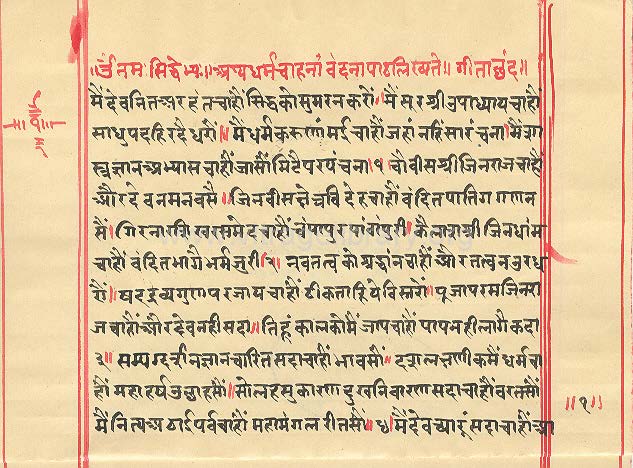 नम सिद्धेभ्यः॥ अथ धर्मचाहनां वंदनापाठ लिख्यते॥ गीताछंद॥
मैंदेवनितअरहंतचाहौंसिद्धकोसुमरनकरौं॥मैंसूरश्रीउपाध्यायचाहौं
साधुपदहिरदैधरौं॥मैंधर्मकरुणांमईचाहौंजहांनहिंसारंचना॥मैंशा
स्त्रज्ञानअभ्यासचाहौंजासौंमिटैपरपंचना१चौवीसश्रीजिनराजचाहौं
औरदेवनमनवसै॥जिनवीसषेत्रविदेहचाहौंवंदितपातिगगणन
सैं॥गिरनारशिखरसमेदचाहौंचंपापुरपांवापुरी॥कैलाशश्रीजिनधांम
चाहौंवंदितभागैभर्मजुरी।२।नवतत्वकोश्रद्धांनचाहौंऔरतत्वनउरध
रौं॥षटद्रव्यगुणपरजायचाहौंठीकताहियेविस्तरौं॥पूजापरमजिनरा
जचाहौंऔरदेवनहीसदा॥तिहूंकालकोमैंजापचाहौंपापनहीलागैकदा
३॥सम्यग्दर्शनज्ञानचारितसदाचाहौंभावसौं॥दशलक्षणीकमैंधर्मचा
हौंमहाहर्षउछाहसौं॥सोलहसुकारणदुखनिवारणसदाचाहौंवरतसौं॥
मैंनित्यअठाईपर्वचाहौंमहामंगलरीतसौं॥४॥मैंदेवच्यारूंसदाचाहौंआ
॥१॥